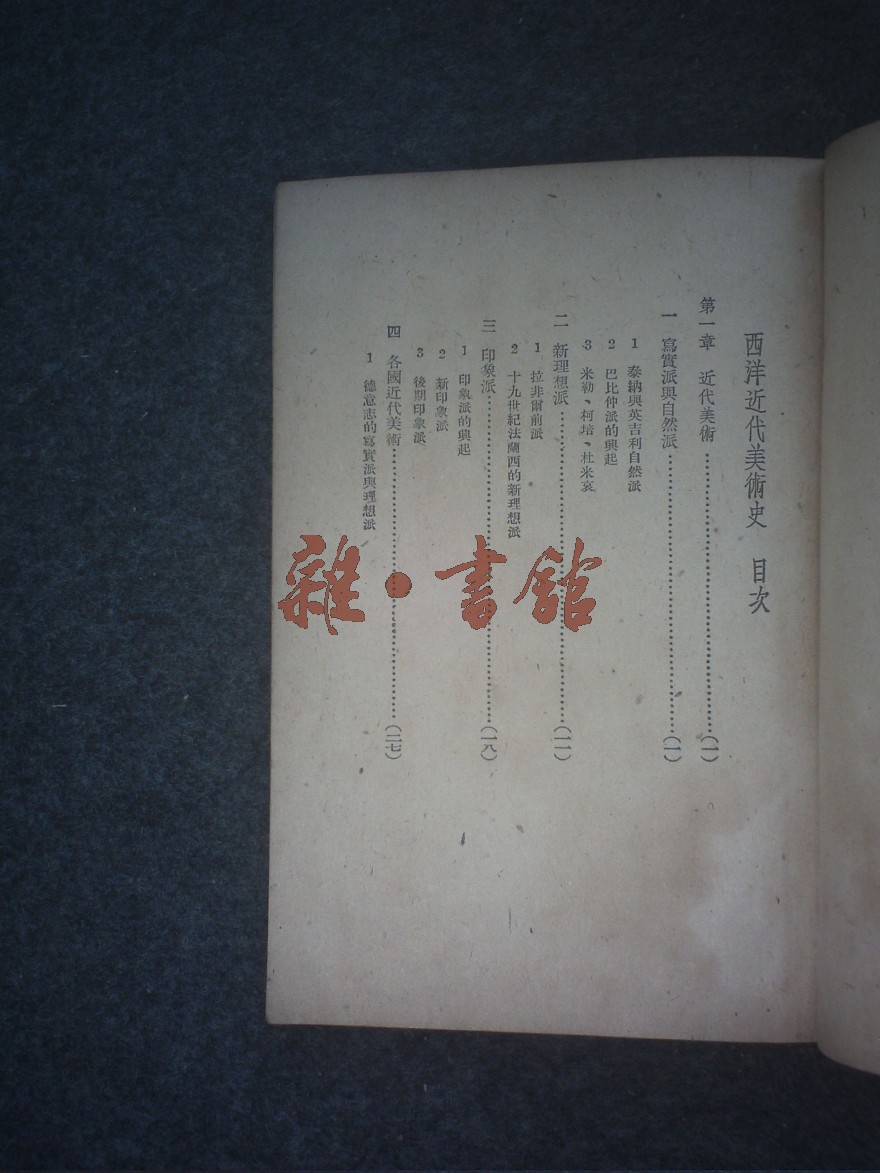 西洋近代美術史　目次
第一章　近代美術……(一)
一　寫實派與自然派……(一)
1　泰納與英吉利自然派
2　巴比仲派的興起
3　米勒、柯培、杜米哀
二　新理想派……(一一)
1　拉非爾前派
2　十九世紀法蘭西的新理想派
三　印象派……(一八)
1　印象派的興起
2　新印象派
3　後期印象派
四　各國近代美術……(二七)
1　德意志的寫實派與理想派
雜·書館